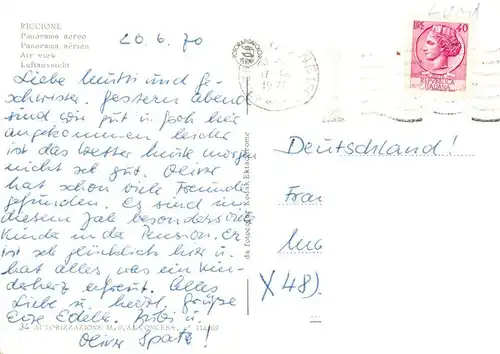 RICCIONE
Panorama aereo
Panorama aérien
Air view
Luftaussicht
20.6.70
Liebe Mutti und Ge-
schwister. Gestern abend
sind wir gut u. froh hier
angekommen leider
ist das Wetter heute morgen
nicht sehr gut. Oliver
hat schon viele Freunde
gefunden. Es sind in
diesem Jahr besonders viele
Kinder in der Pension. Er
ist sehr glücklich hier u.
hat alles, was ein Kin-
derherz erfreut. Alles
Liebe u. herzl. Grüße
Eure Edelh. u.
Oliver Spatz!
34 AUTORIZZAZIONE M.O.A. CONCESS.
da fotocolor Kodak Ektachrome
40
REPVBBLICA
ITALIANA
Deutschland!
Frau
X 48)